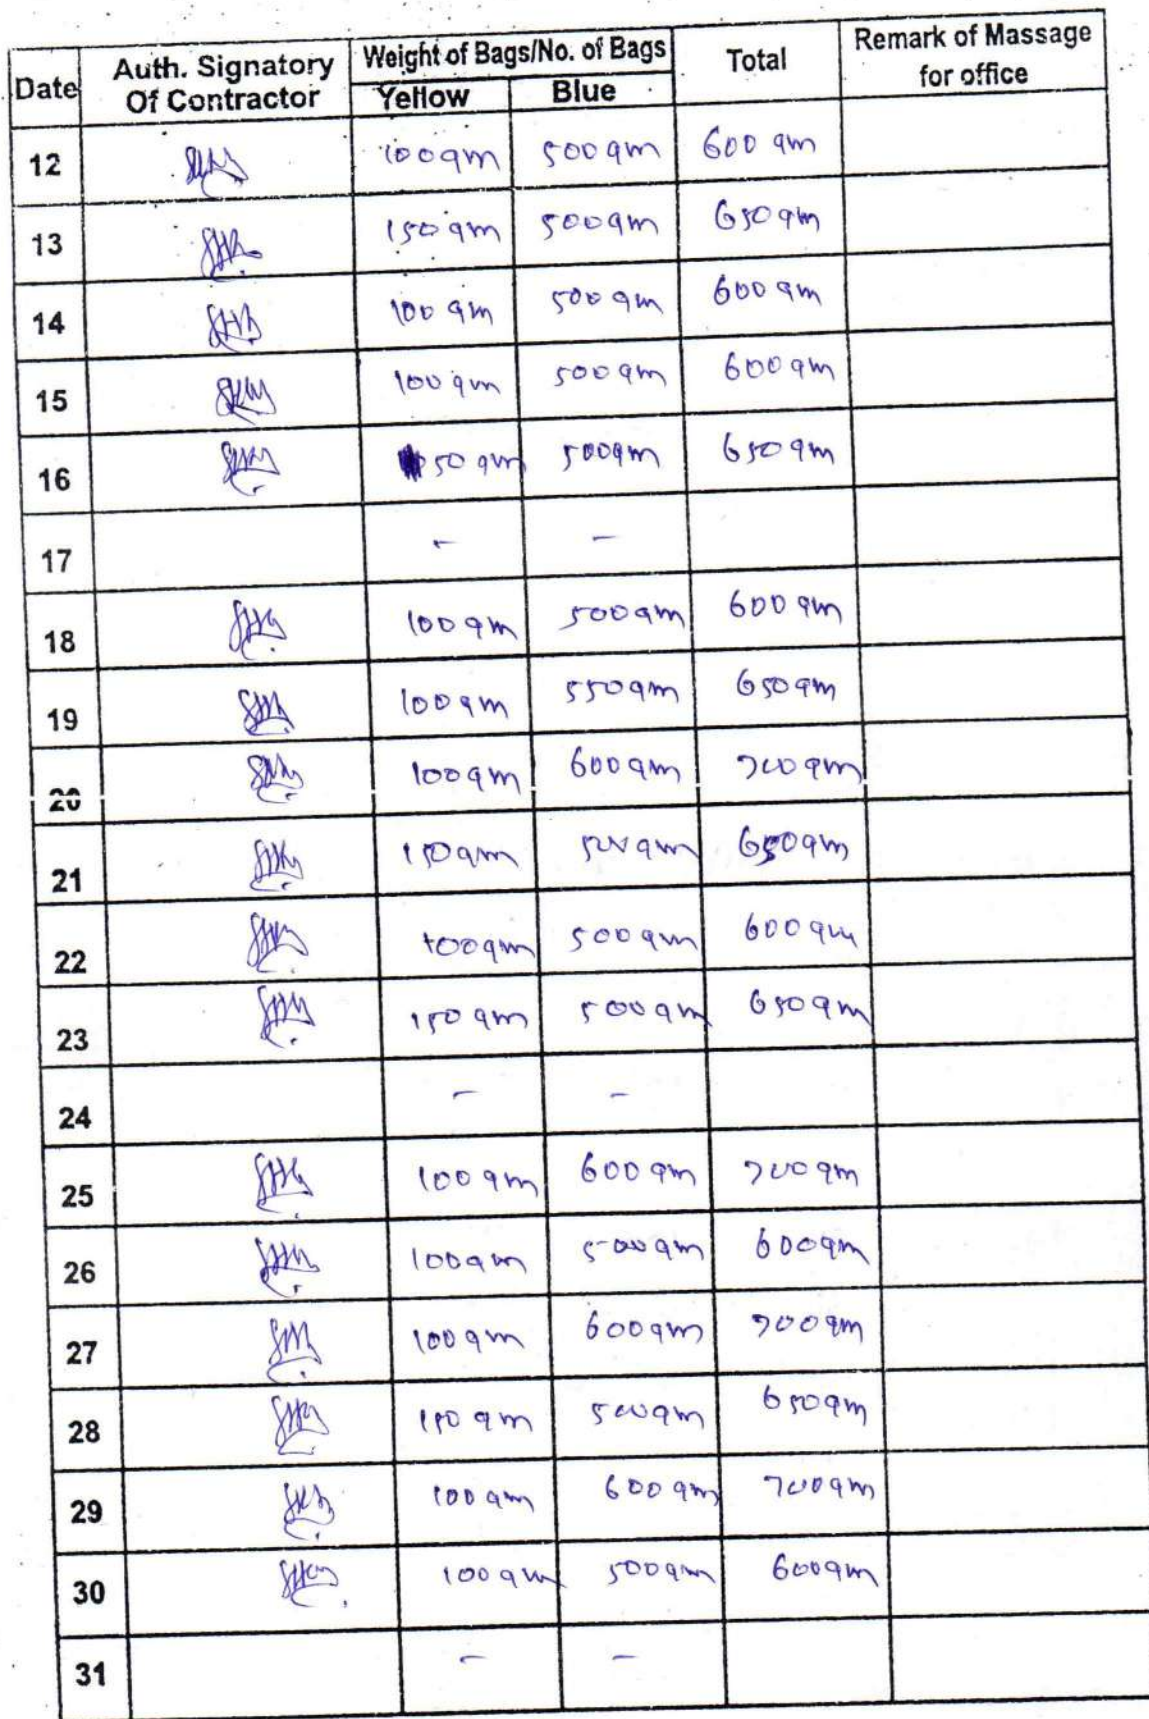 Date Auth. Signatory Of Contractor Weight of Bags/No. of Bags Yellow Blue Total Remark of Massage for office
12 100 gm 500 gm 600 gm
13 150 gm 500 gm 650 gm
14 100 gm 500 gm 600 gm
15 100 gm 500 gm 600 gm
16 50 gm 500 gm 650 gm
17 - -
18 100 gm 500 gm 600 gm
19 100 gm 550 gm 650 gm
20 100 gm 600 gm 700 gm
21 150 gm 500 gm 650 gm
22 100 gm 500 gm 600 gm
23 150 gm 500 gm 650 gm
24 - -
25 100 gm 600 gm 700 gm
26 100 gm 500 gm 600 gm
27 100 gm 600 gm 700 gm
28 150 gm 500 gm 650 gm
29 100 gm 600 gm 700 gm
30 100 gm 500 gm 600 gm
31 - -